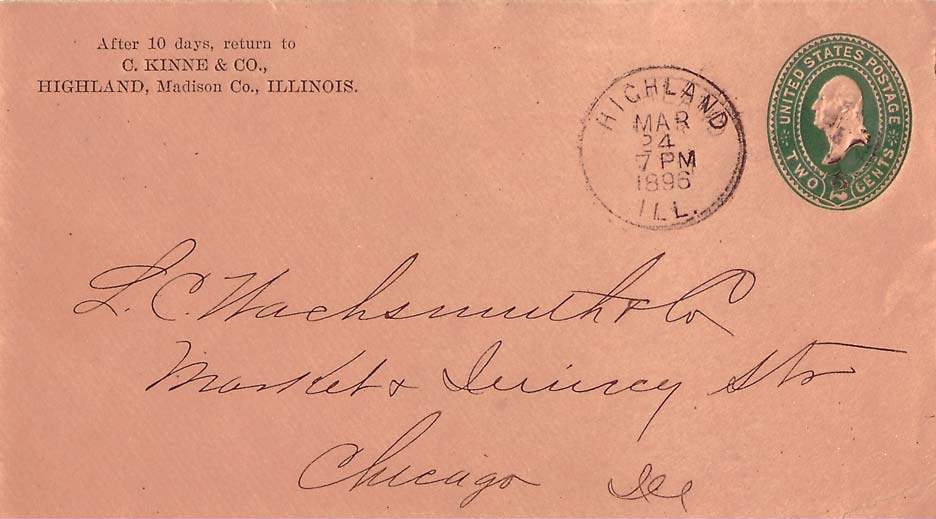 After 10 days, return to
C. KINNE & CO.,
HIGHLAND, Madison Co., ILLINOIS.
HIGHLAND
MAR
24
7 PM
1896
ILL.
UNITED STATES POSTAGE
TWO 2 CENTS
L. C. Wachsmuth & Co
Market & Quincy Str
Chicago Ill